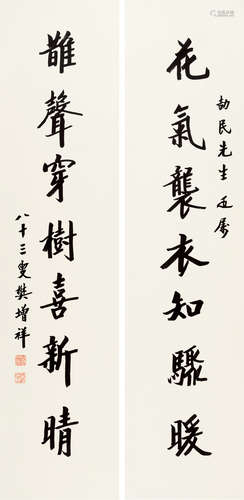 花氣襲衣知驟暖
劬民先生 正屬
鵲聲穿樹喜新晴
八十三叟樊增祥